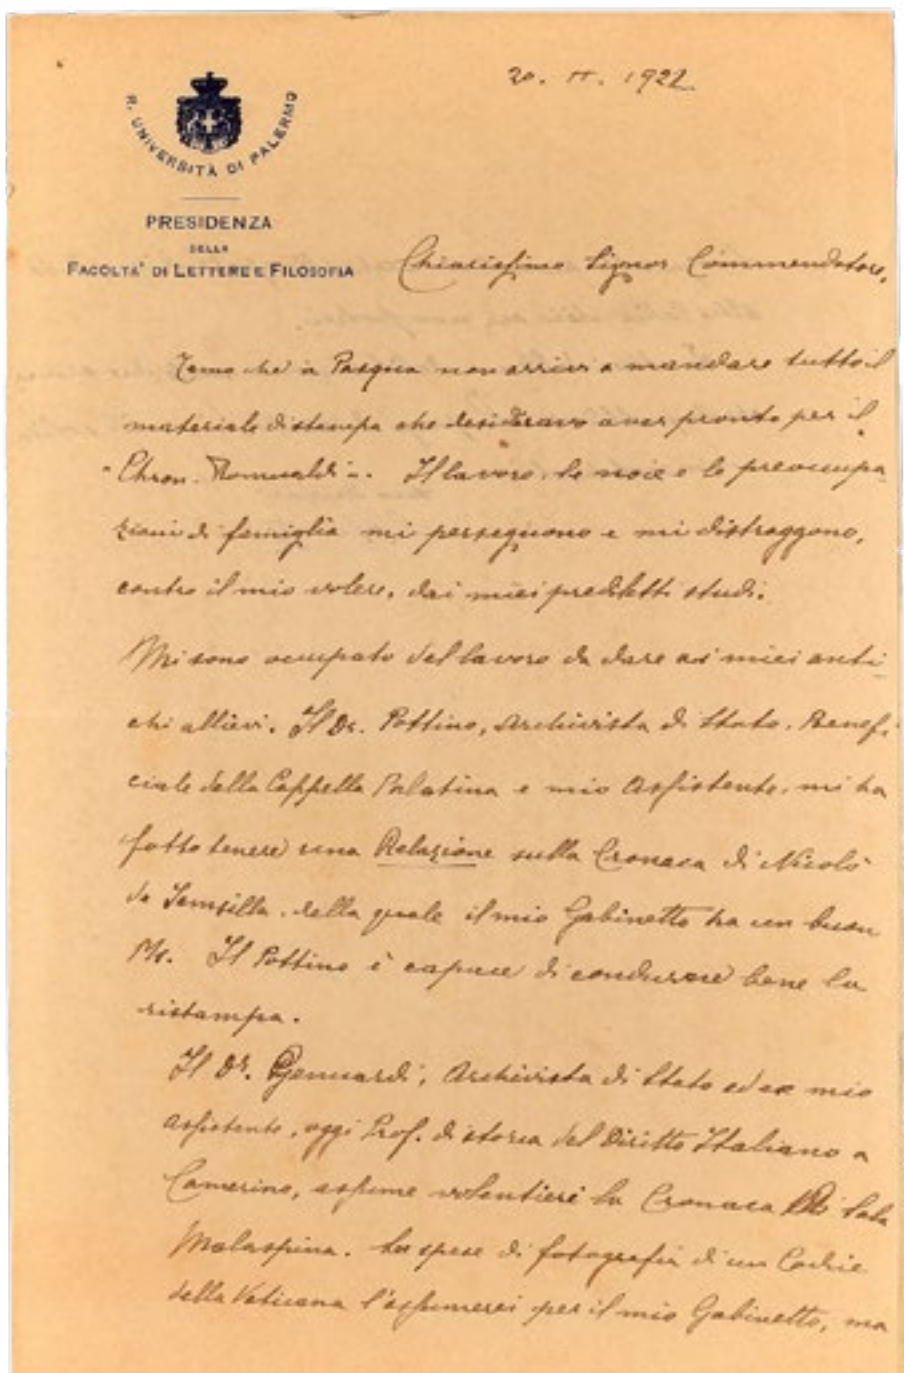 20. II. 1922
R. UNIVERSITÀ DI PALERMO
PRESIDENZA
DELLA
FACOLTA' DI LETTERE E FILOSOFIA
Chiarissimo Signor Commendatore,
Temo che a Pasqua non arrivi a mandare tutto il
materiale di stampa che desideravo aver pronto per il
"Chron. Romualdi". Il lavoro, le noie e le preoccupa
zioni di famiglia mi perseguono e mi distraggono,
contro il mio volere, dai miei prediletti studi.
Mi sono occupato del lavoro da dare ai miei anti
chi allievi. Il Dr. Pottino, Archivista di Stato, Benefi
ciale della Cappella Palatina e mio Assistente, mi ha
fatto tenere una Relazione sulla Cronaca di Nicolò
da Jamsilla, della quale il mio Gabinetto ha un buon
Ms. Il Pottino è capace di condurre bene la
ristampa.
Il Dr. Genuardi, Archivista di Stato ed ex mio
assistente, oggi Prof. di storia del Diritto Italiano a
Camerino, assume volentieri la Cronaca di Saba
Malaspina. Le spese di fotografia di un Codice
della Vaticana l'assumerei per il mio Gabinetto, ma